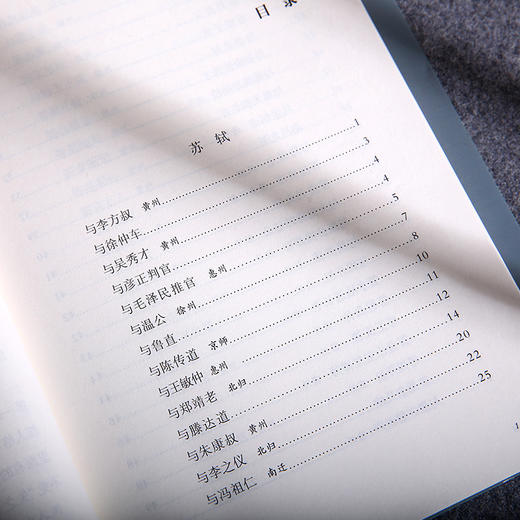 目录
苏轼
与李方叔 黄州 1
与徐仲车 3
与吴秀才 黄州 4
与彦正判官 4
与毛泽民推官 惠州 5
与温公 徐州 7
与鲁直 8
与陈传道 京师 10
与王敏仲 惠州 11
与郑靖老 北归 12
与滕达道 14
与朱康叔 黄州 20
与李之仪 北归 22
与冯祖仁 南迁 25
1